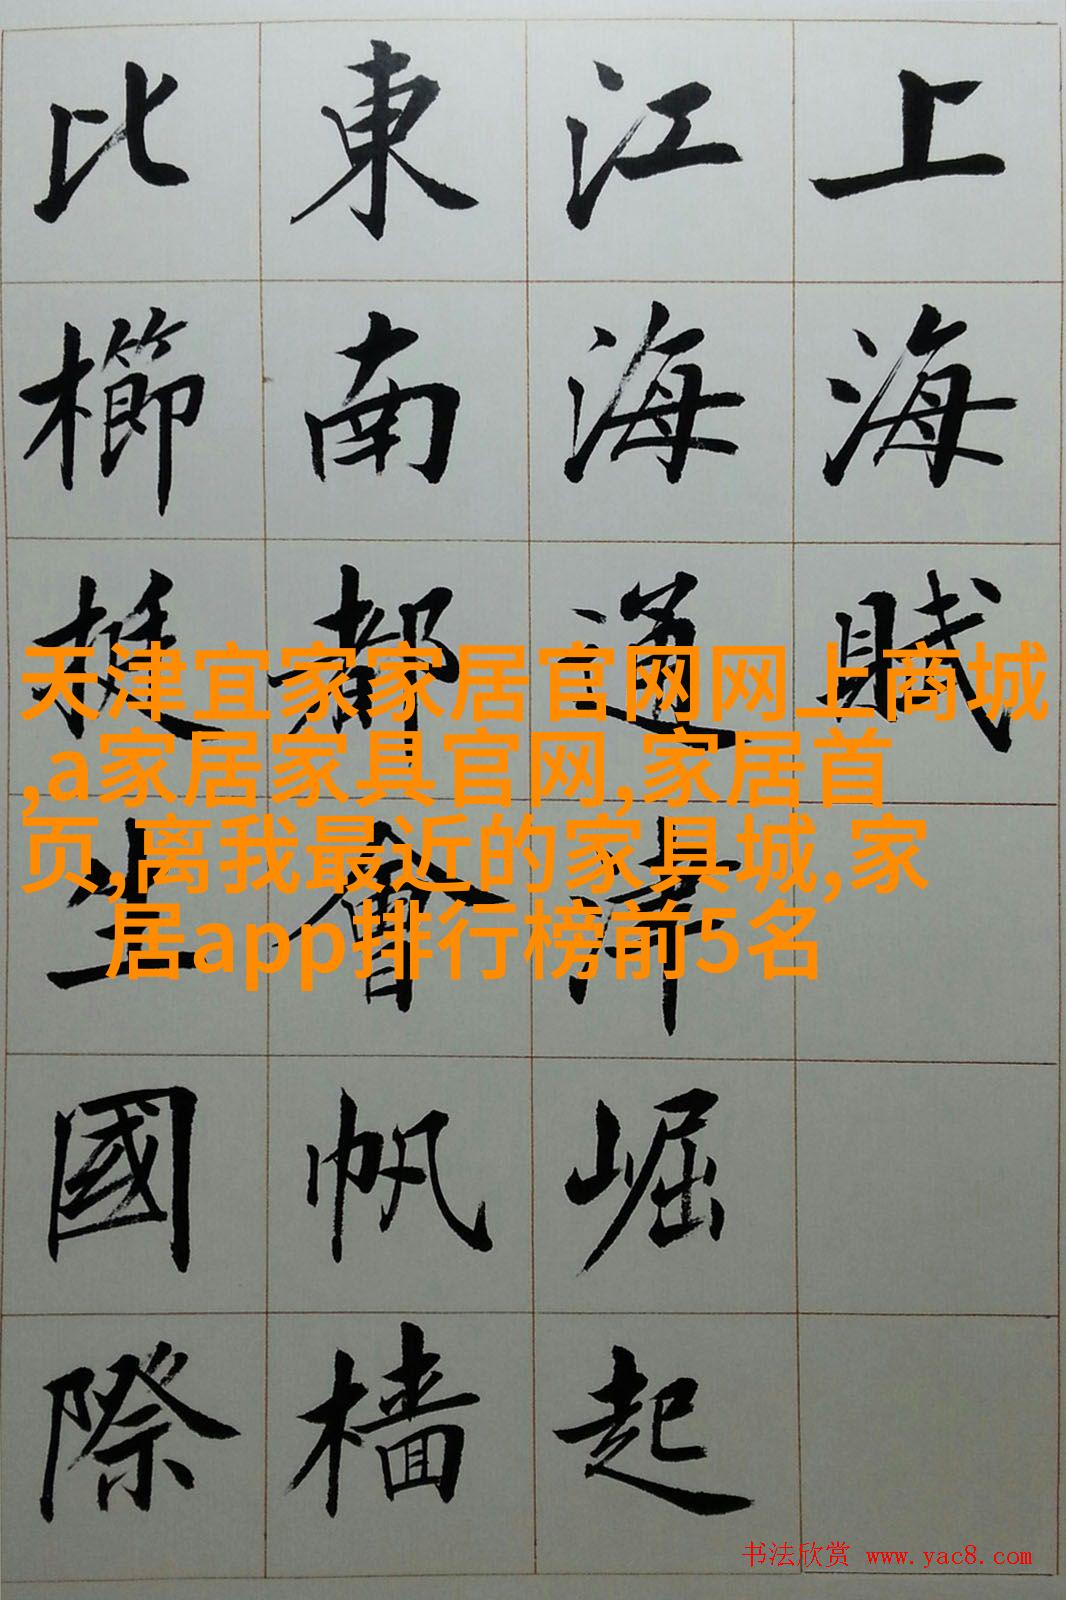 上海賦
江海通津崛起
東南都會帆檣
比櫛挺生國際
天津宜家家居官网网上商城
,a家居家具官网,家居首
页,离我最近的家具城,家
居app排行榜前5名
书法欣赏 www.yac8.com